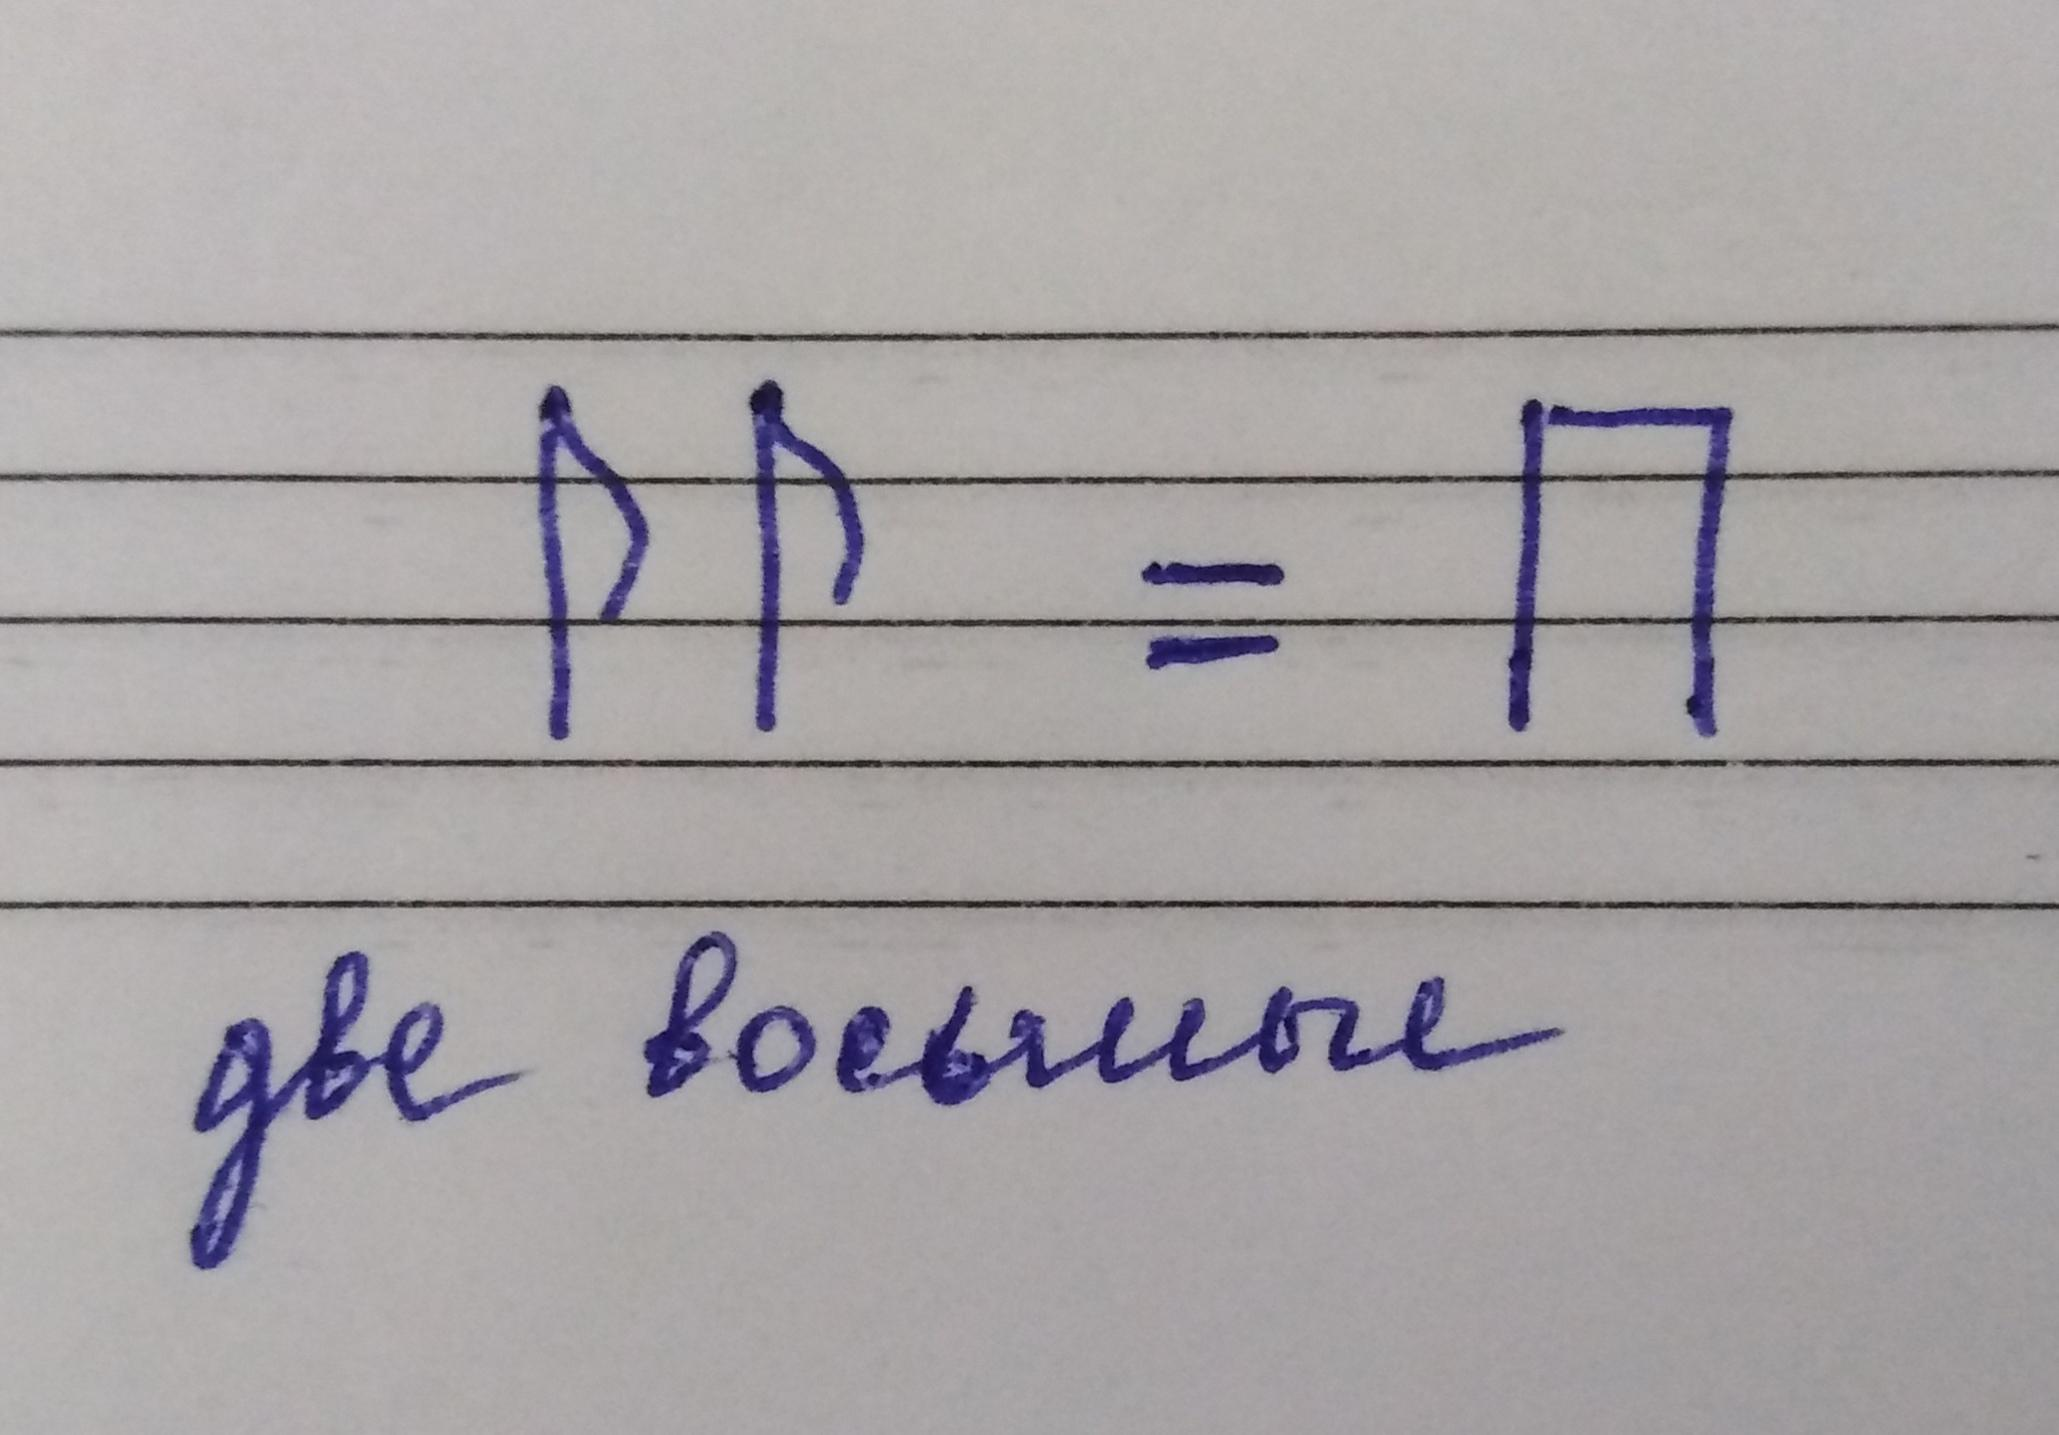 =
две восьмые